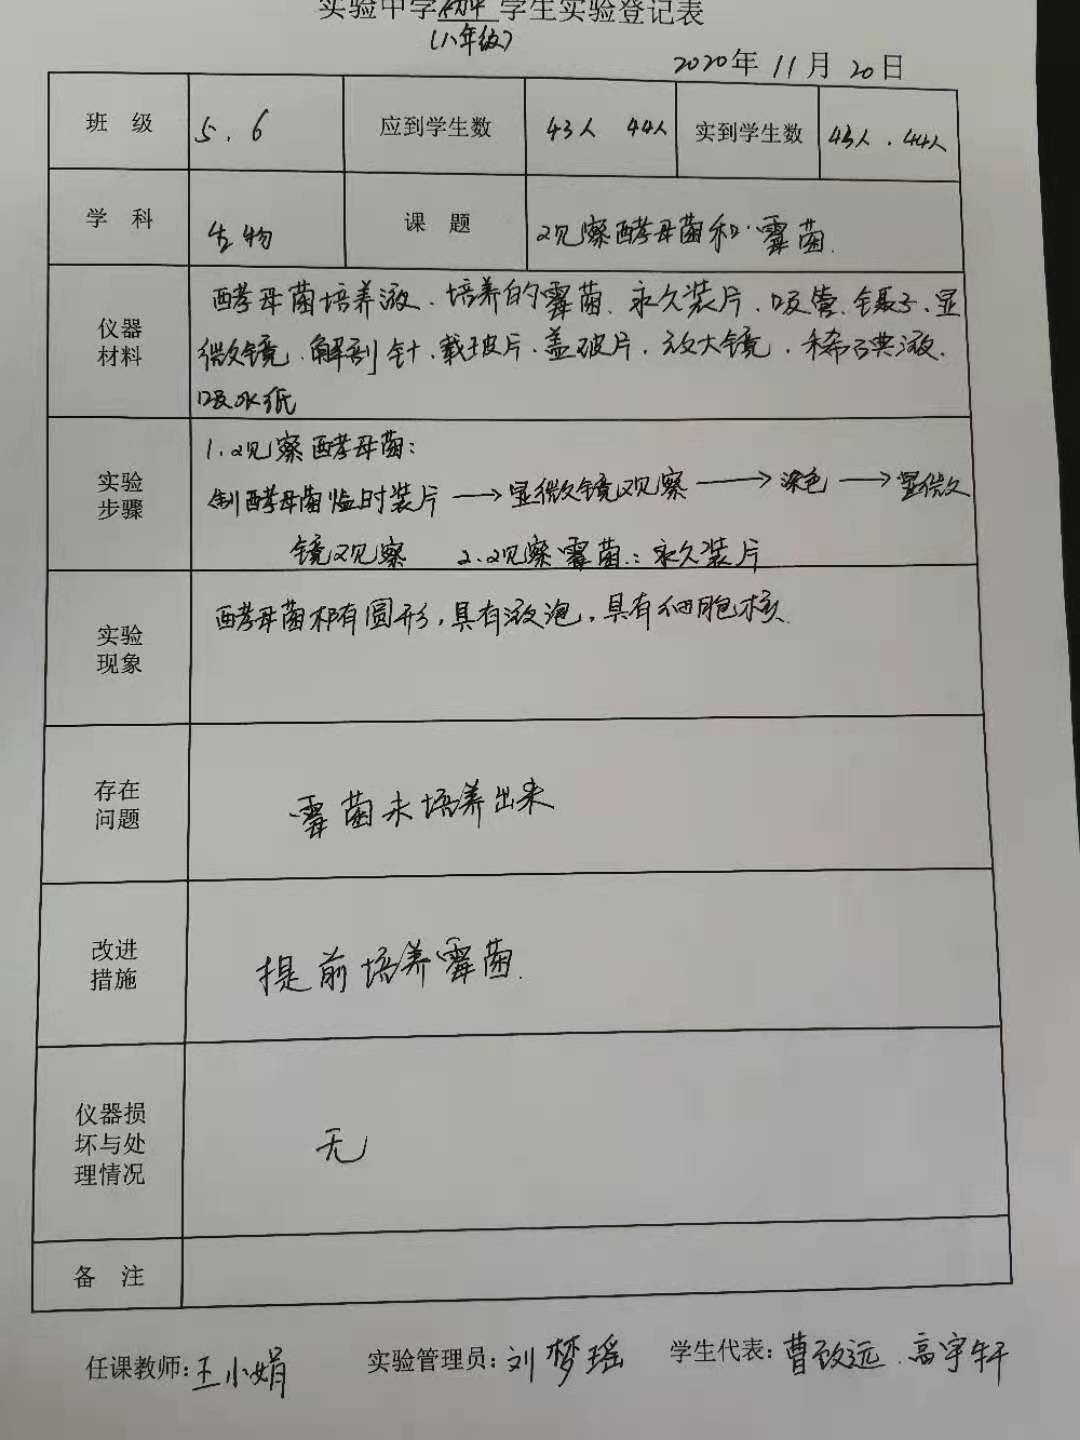 实验中学初中学生实验登记表
(八年级)
2020年 11月 20日
班 级 5.6 应到学生数 43人 44人 实到学生数 43人.44人
学 科 生物 课 题 观察酵母菌和霉菌.
仪器材料
酵母菌培养液.培养的霉菌.永久装片.吸管.镊子.显
微镜.解剖针.载玻片.盖玻片.放大镜.稀碘液.
吸水纸
实验步骤
1.观察酵母菌:
制酵母菌临时装片→显微镜观察→染色→显微
镜观察 2.观察霉菌:永久装片
实验现象
酵母菌都有圆形,具有液泡,具有细胞核.
存在问题
霉菌未培养出来
改进措施
提前培养霉菌.
仪器损坏与处理情况
无
备 注
任课教师:王小娟 实验管理员:刘梦瑶 学生代表:曹致远.高宇轩